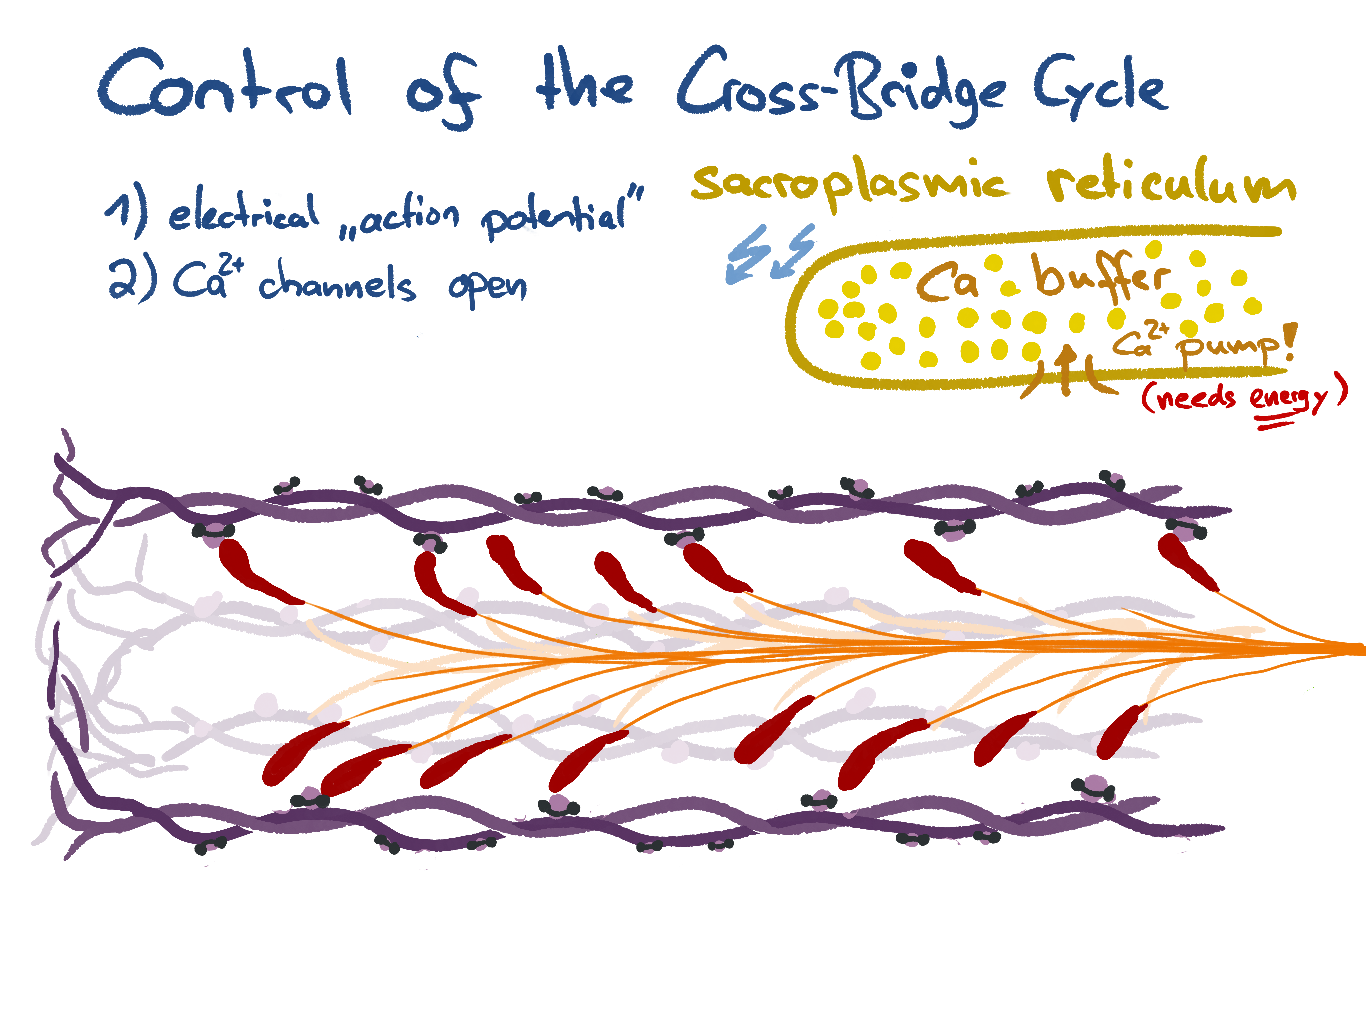 Control of the Cross-Bridge Cycle
1) electrical „action potential"
2) Ca2+ channels open
sacroplasmic reticulum
Ca buffer
Ca2+ pump!
(needs energy)